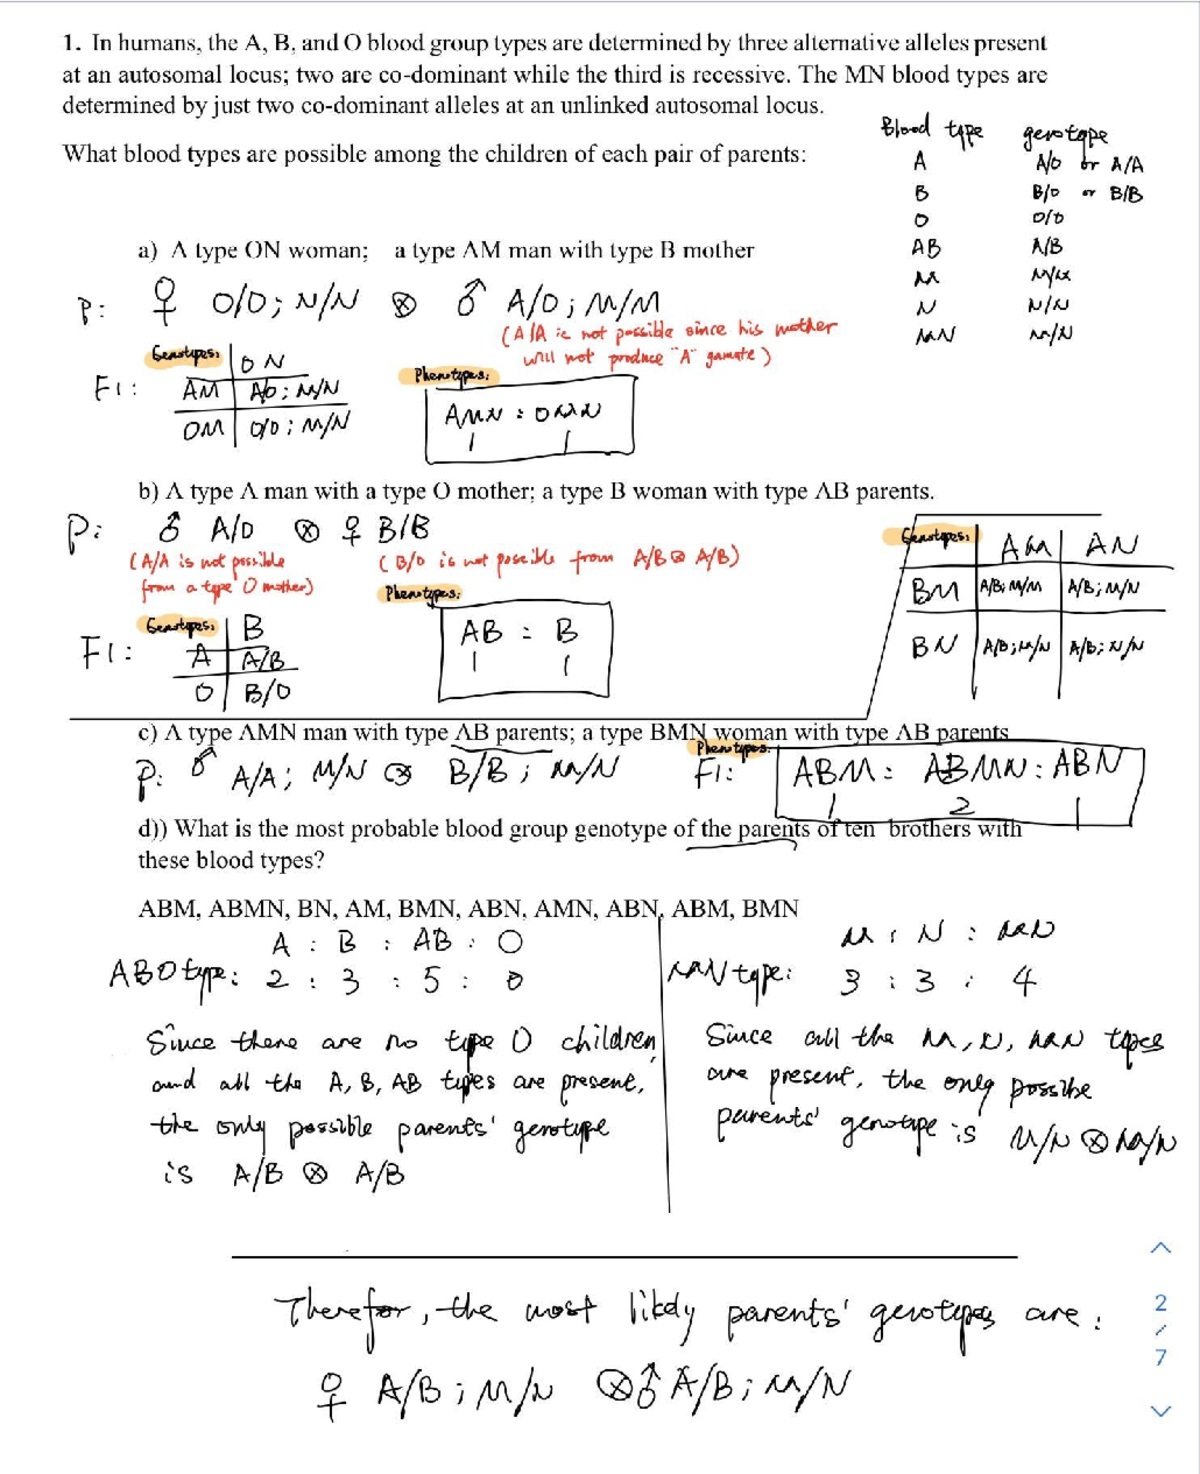 1. In humans, the A, B, and O blood group types are determined by three alternative alleles present
at an autosomal locus; two are co-dominant while the third is recessive. The MN blood types are
determined by just two co-dominant alleles at an unlinked autosomal locus.
What blood types are possible among the children of each pair of parents:
Blood type genotype
A A/O or A/A
B B/O or B/B
O O/O
AB A/B
M M/M
N N/N
MN M/N
a) A type ON woman; a type AM man with type B mother
P: ♀ O/O; N/N ⊗ ♂ A/O; M/M
(A/A is not possible since his mother
will not produce "A" gamate)
Genotypes: ON
F1: AM A/O; M/N
OM O/O; M/N
Phenotypes:
AMN : OMN
1 1
b) A type A man with a type O mother; a type B woman with type AB parents.
P: ♂ A/O ⊗ ♀ B/B
(A/A is not possible
from a type O mother)
(B/O is not possible from A/B ⊗ A/B)
Genotypes: B
F1: A A/B
O B/O
Phenotypes:
AB : B
1 1
Genotypes: AM AN
BM A/B; M/M A/B; M/N
BN A/B; M/N A/B; N/N
c) A type AMN man with type AB parents; a type BMN woman with type AB parents
P: ♂ A/A; M/N ⊗ B/B; M/N
Phenotypes:
F1: ABM : ABMN : ABN
1 2 1
d)) What is the most probable blood group genotype of the parents of ten brothers with
these blood types?
ABM, ABMN, BN, AM, BMN, ABN, AMN, ABN, ABM, BMN
A : B : AB : O
ABO type: 2 : 3 : 5 : 0
Since there are no type O children
and all the A, B, AB types are present,
the only possible parents' genotype
is A/B ⊗ A/B
M : N : MN
MN type: 3 : 3 : 4
Since all the M, N, MN types
are present, the only possibe
parents' genotype is M/N ⊗ M/N
Therefor, the most likely parents' genotypes are:
♀ A/B; M/N ⊗ ♂ A/B; M/N
2
/
7